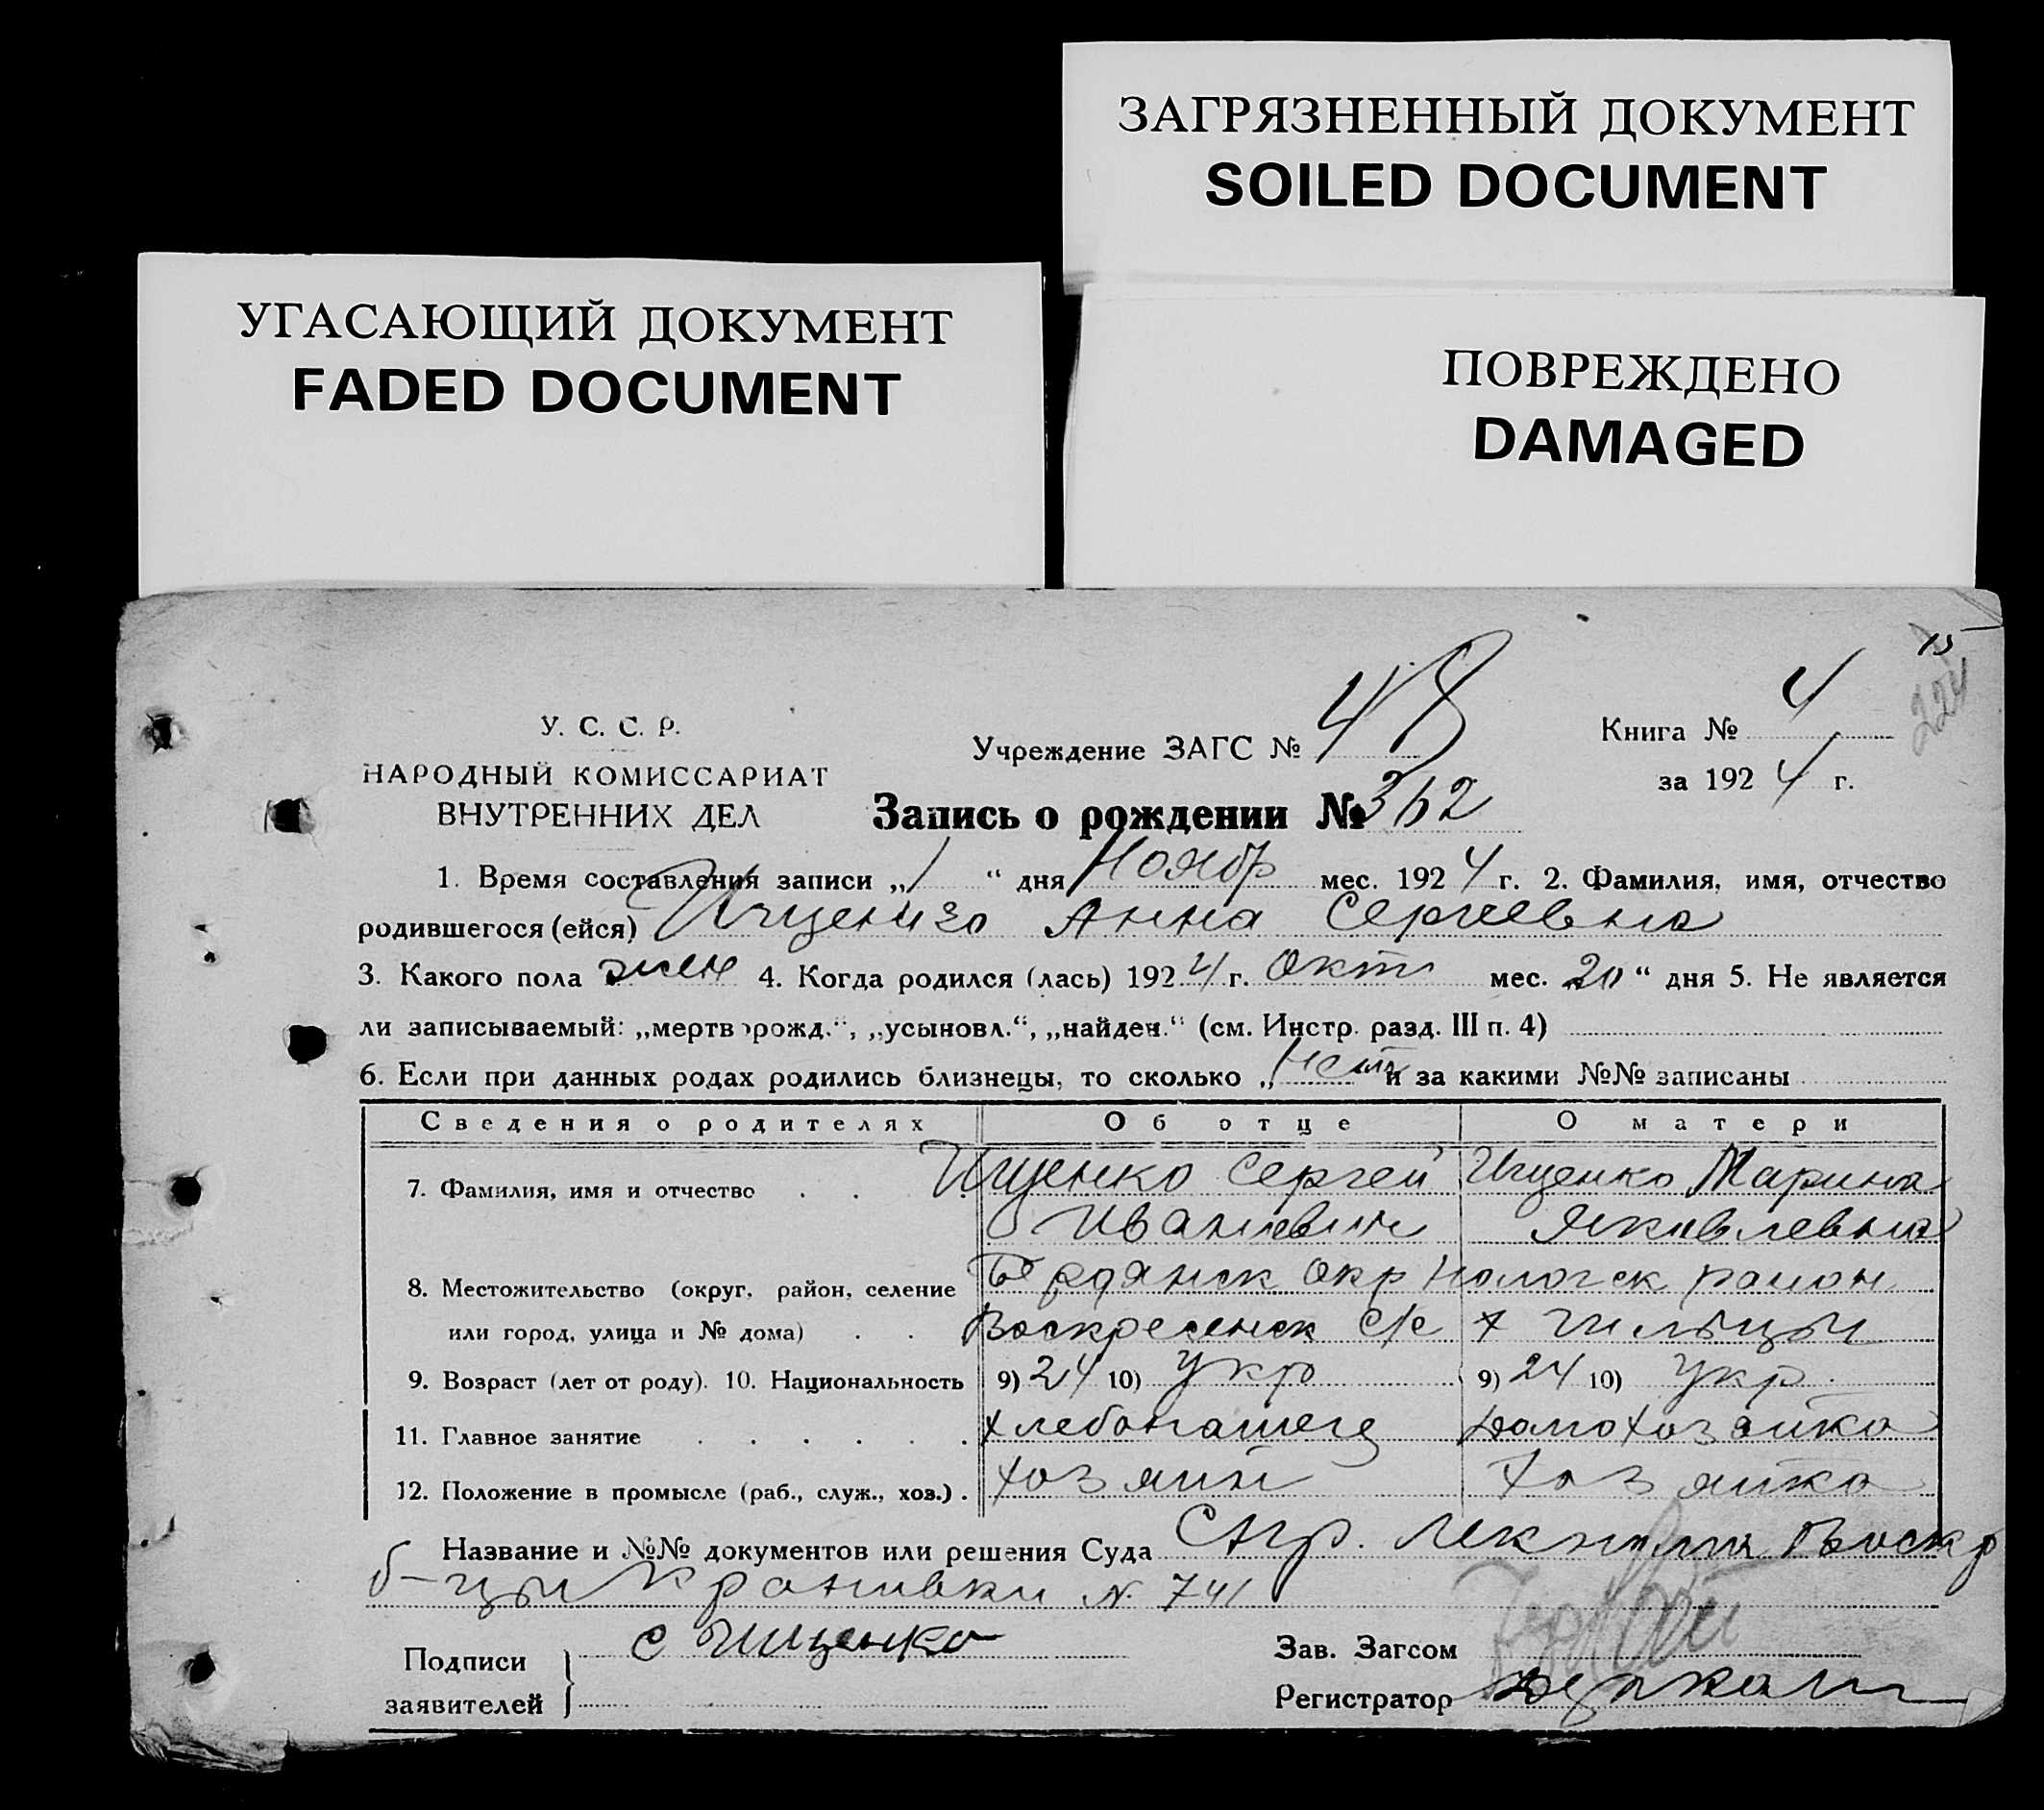 ЗАГРЯЗНЕННЫЙ ДОКУМЕНТ
SOILED DOCUMENT
УГАСАЮЩИЙ ДОКУМЕНТ
FADED DOCUMENT
ПОВРЕЖДЕНО
DAMAGED
15
224
У. С. С. Р.
НАРОДНЫЙ КОМИССАРИАТ
ВНУТРЕННИХ ДЕЛ
Учреждение ЗАГС № 48
Книга № 4
за 1924 г.
Запись о рождении № 362
1. Время составления записи „1“ дня Ноябр мес. 1924 г. 2. Фамилия, имя, отчество
родившегося (ейся) Ищенко Анна Сергеевна
3. Какого пола жен 4. Когда родился (лась) 1924 г. Окт мес. 20“ дня 5. Не является
ли записываемый: „мертворожд.“, „усыновл.“, „найден.“ (см. Инстр. разд. III п. 4)
6. Если при данных родах родились близнецы, то сколько „нет и за какими №№ записаны
Сведения о родителях Об отце О матери
7. Фамилия, имя и отчество Ищенко Сергей Ищенко Марина
Иваневич Яковлевна
8. Местожительство (округ, район, селение Бердянск окр район
или город, улица и № дома) Воскресенск с/с х
9. Возраст (лет от роду). 10. Национальность 9) 24 10) Укр 9) 24 10) Укр.
11. Главное занятие хлебопашец домохозяйка
12. Положение в промысле (раб., служ., хоз.). хозяин хозяйка
Название и №№ документов или решения Суда Спр. Воскр
б-цы N. 741
Подписи
заявителей
С Ищенко
Зав. Загсом
Регистратор